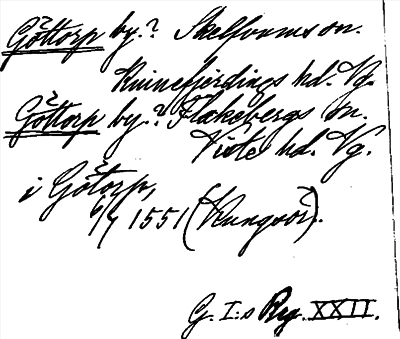 Göttorp by.? Skelfvums sn.
Kinnefjerdings hd. Vg.
Götorp by.? Flakebergs sn.
Viste hd. Vg.
i Götorp,
6/7 1551 (Kungvoi).
G. I:s Reg. XXII.